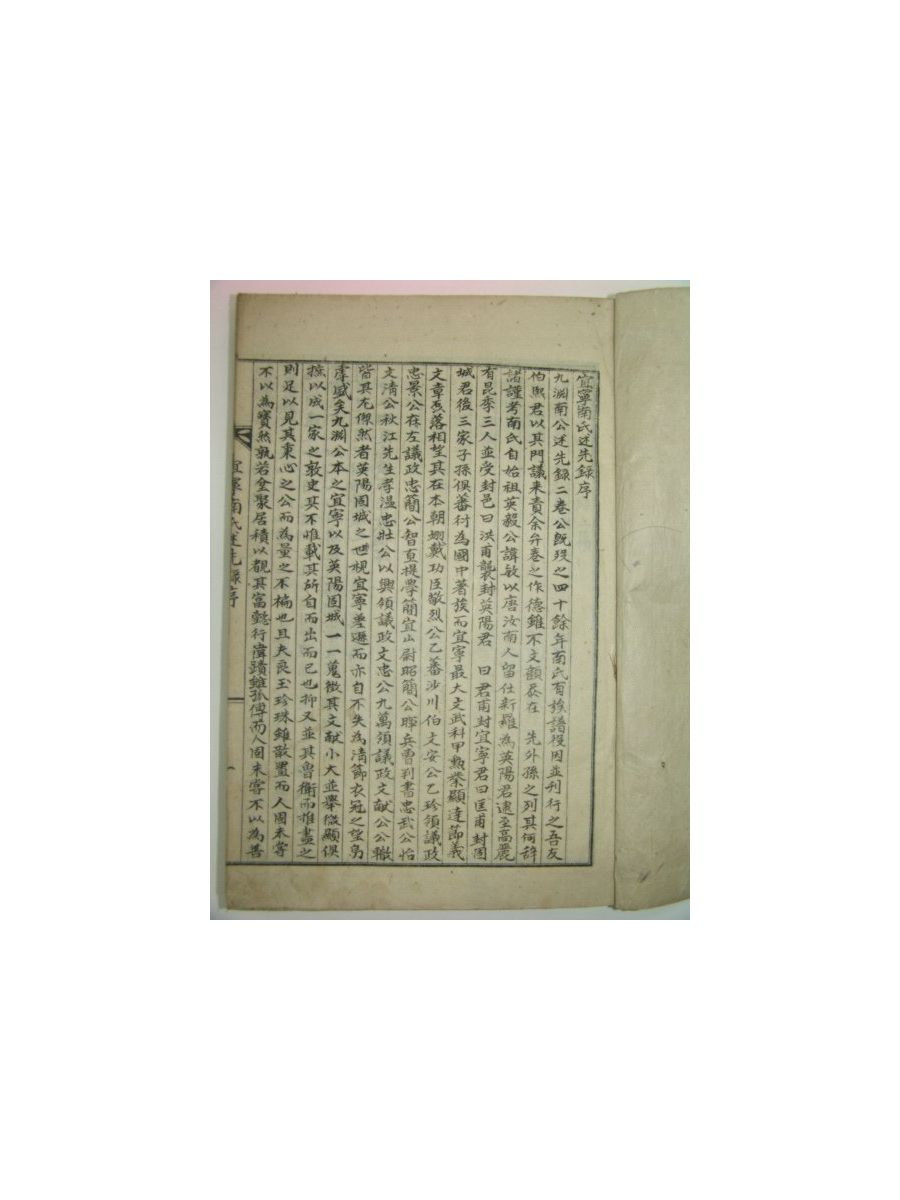 宜寧南氏述先錄序
九淵南公述先録二卷公旣歿之四十餘年南氏有族譜役因並刊行之吾友
伯熙君以其門議来責余弁卷之作德雖不文顧忝在 先外孫之列其何辞
諸謹考南氏自始祖英毅公諱敏以唐汝南人留仕新羅為英陽君逮至高麗
有昆季三人並受封邑曰洪甫襲封英陽君 曰君甫封宜寧君曰匡甫封固
城君後三家子孫俱蕃衍為國中著族而宜寧最大文武科甲勲業顯達節義
文章磊落相望其在本朝翊戴功臣敬烈公乙蕃沙川伯文安公乙珍領議政
忠景公在左議政忠簡公智直提學簡宜山尉昭簡公暉兵曹判書忠武公怡
文清公秋江先生孝溫忠壯公以興領議政文忠公九萬領議政文献公公轍
皆其尤傑然者英陽固城之世視宜寧差遜而亦自不失為清節衣冠之望烏
虖盛矣九淵公本之宜寧以及英陽固城一一蒐徵其文献小大並舉微顯俱
摭以成一家之敦史其不惟載其所自而出而已也抑又並其魯衛而惟盡之
則足以見其秉心之公而為量之不褊也且夫良玉珍珠錐散置而人固未嘗
不以為寶然孰若叢聚居積以觀其富懿行偉蹟錐孤傳而人固未嘗不以為善
宜寧南氏述先録序 一